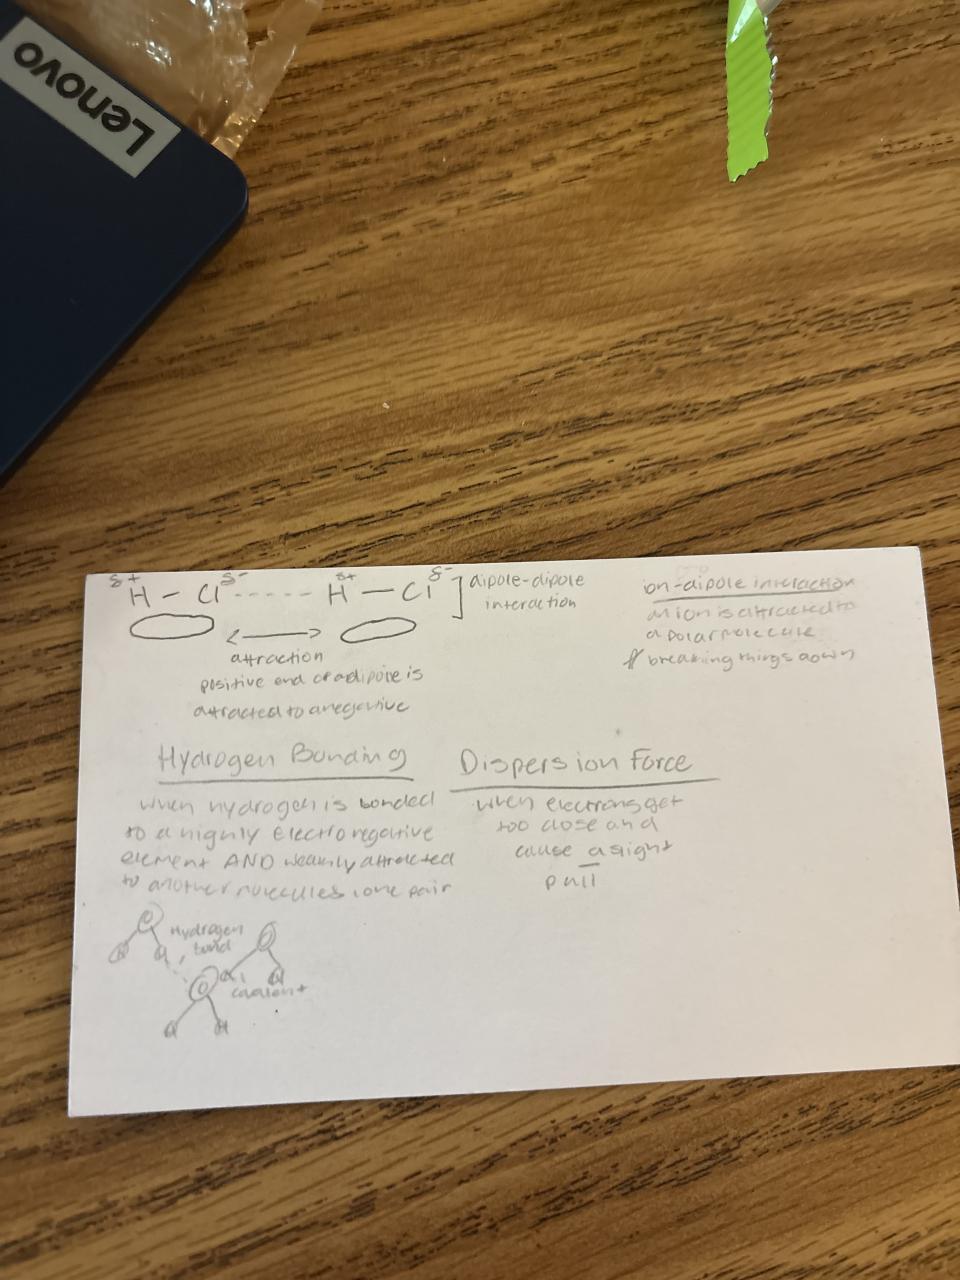 Lenovo
δ+ H – Cl δ- ----- δ+ H – Cl δ- ] dipole-dipole
interaction
attraction
positive end of a dipole is
attracted to a negative
ion-dipole interaction
an ion is attracted to
a polar molecule
breaking things down
Hydrogen Bonding
when hydrogen is bonded
to a highly electronegative
element AND weakly attracted
to another molecules lone pair
Hydrogen
bond
O
covalent
Dispersion Force
when electrons get
too close and
cause a slight
pull